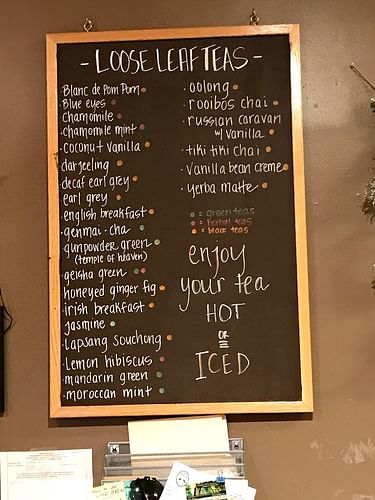 - LOOSE LEAF TEAS -
Blanc de Pom Pom
Blue eyes
chamomile
chamomile mint
coconut vanilla
darjeeling
decaf earl grey
earl grey
english breakfast
genmai-cha
gunpowder green
(temple of heaven)
geisha green
honeyed ginger fig
irish breakfast
jasmine
lapsang souchong
Lemon hibiscus
mandarin green
moroccan mint
oolong
rooibos chai
russian caravan
w/ vanilla
tiki tiki chai
vanilla bean creme
yerba matte
= green teas
= herbal teas
= black teas
enjoy
your tea
HOT
OR
ICED